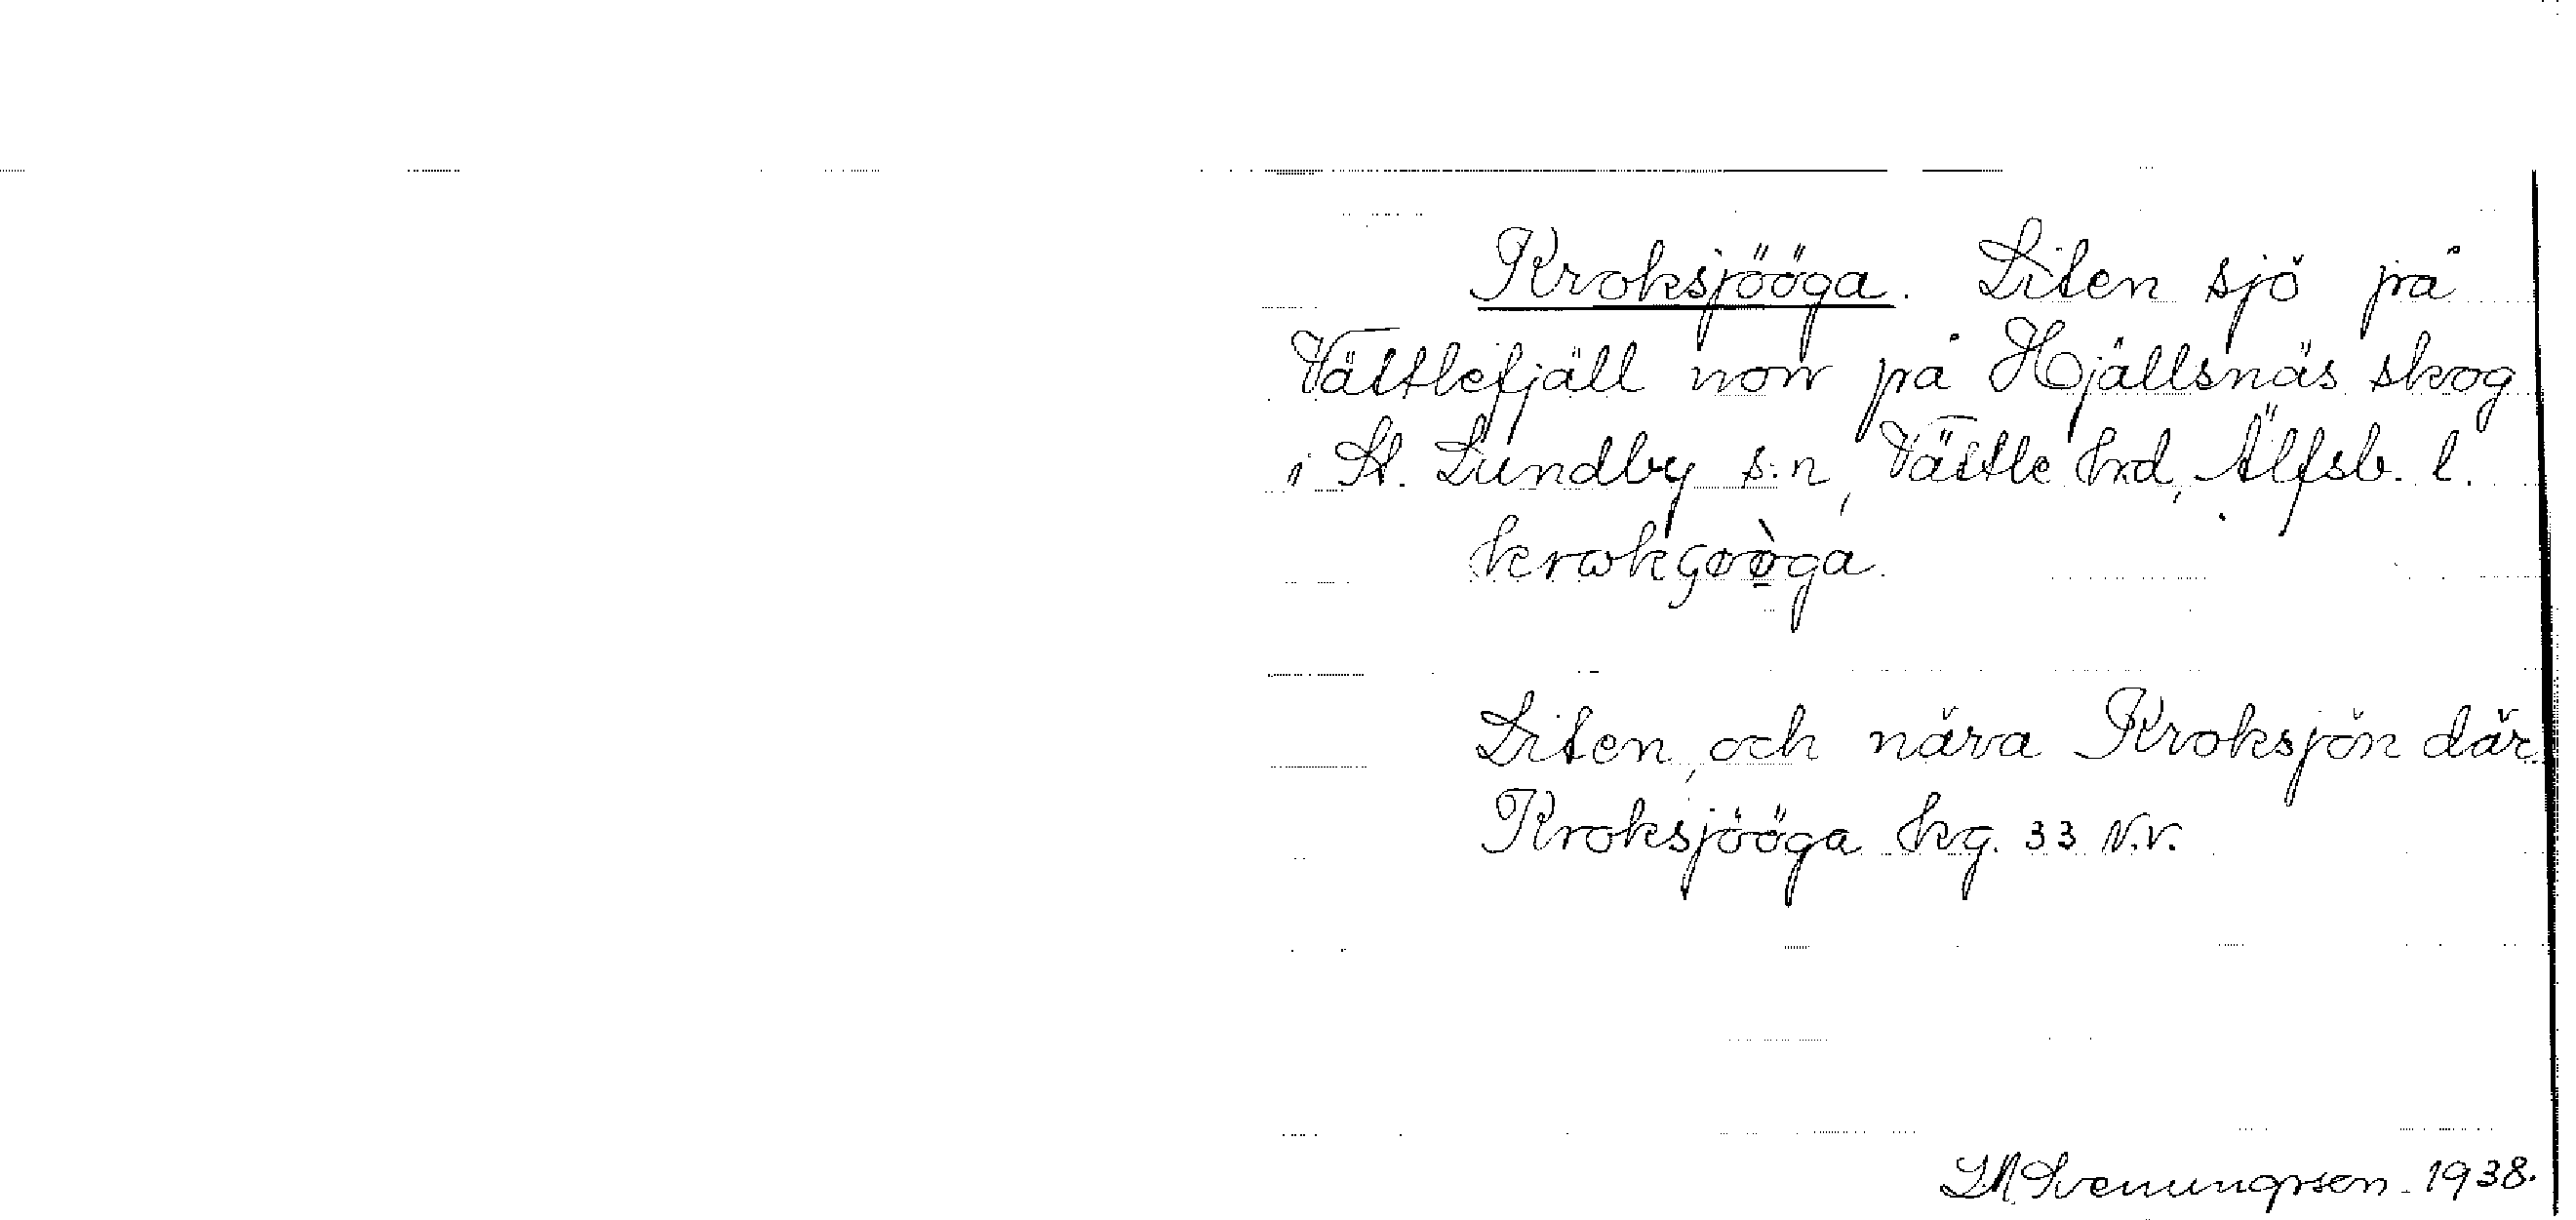 Kroksjööga. Liten sjö på
Vättlefjäll norr på Hjällsnäs skog
i St. Lundby s:n, Vättle hrd, Älfsb. l.
krokꞔøø̀ga.
Liten, och nära Kroksjön där
Kroksjööga kg. 33 N.V.
Svenungsson. 1938.